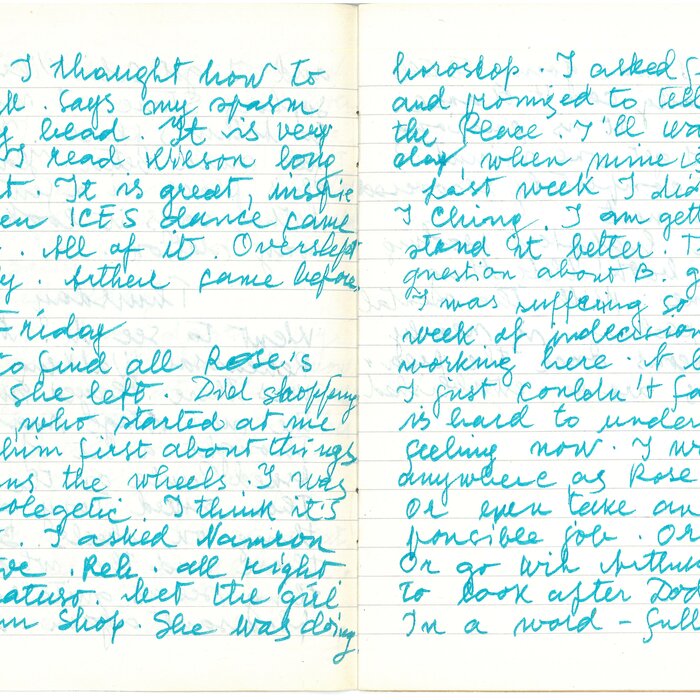 I thought how to
. Says my spasm
head. It is very
I read Wilson long
t. It is great, inspire
ICES dance came
. All of it. Overslept
y. Arthur came before,
Friday
to find all Rose's
she left. Did shopping
who started at me
him first about things
the wheels. I was
olegetic. I think it's
. I asked Namron
ve. Reh. all right
. Met the girl
m Shop. She was doing
horoskop. I asked
and promized to tell
the Place I'll wa
day, when mine is
Last week I did
I Ching. I am get
stand it better. T
question about B. g
I was suffering so
week of indecision
working here. N
I just couldn't fo
is hard to under
feeling now. I w
anywhere as Rose
Or even take an
ponsible job. Or
Or go with Arthur
to look after Dod
In a word - full